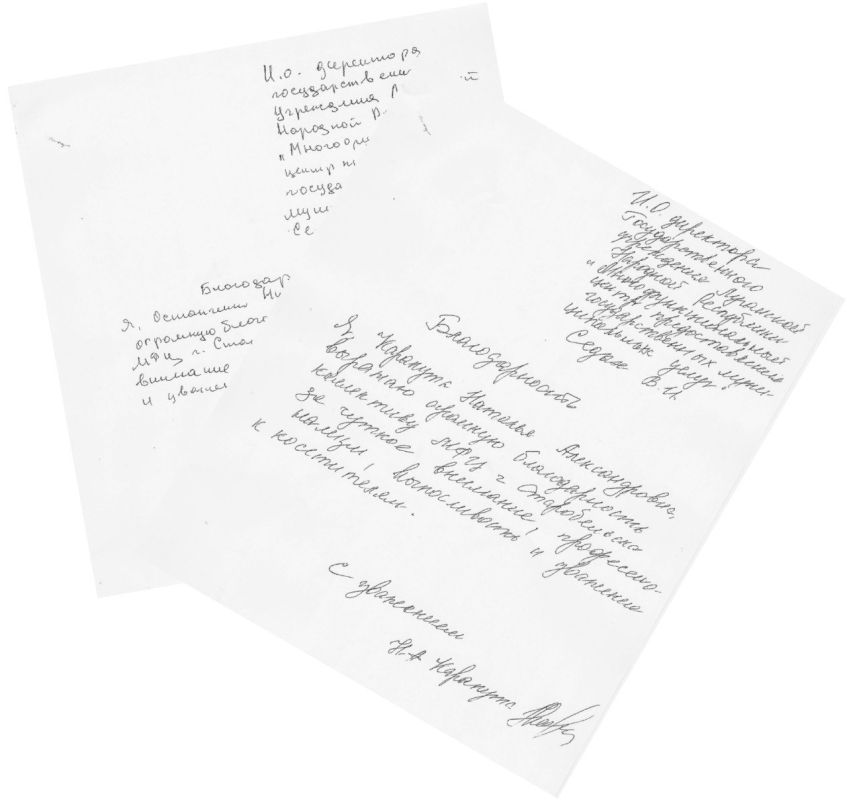 И.о. директора
государствен
учреждения Л
Народной Р
"Много
центр
госуда
муни
Се
Благодар
Я, Ни
огромную благо
МФЦ г. Ста
внимание
и уважен
И.О. директора
Государственного
учреждения Луганской
Народной Республики
"Многофункциональный
центр предоставления
государственных муни-
ципальных услуг"
Седых В И
Благодарность
Я Карапута Наталья Александровна,
выражаю огромную благодарность
коллективу МФЦ г Старобельска
за чуткое внимание, професио-
нализм, выносливость и уважение
к посетителям.
С уважением
Н.А Карапута